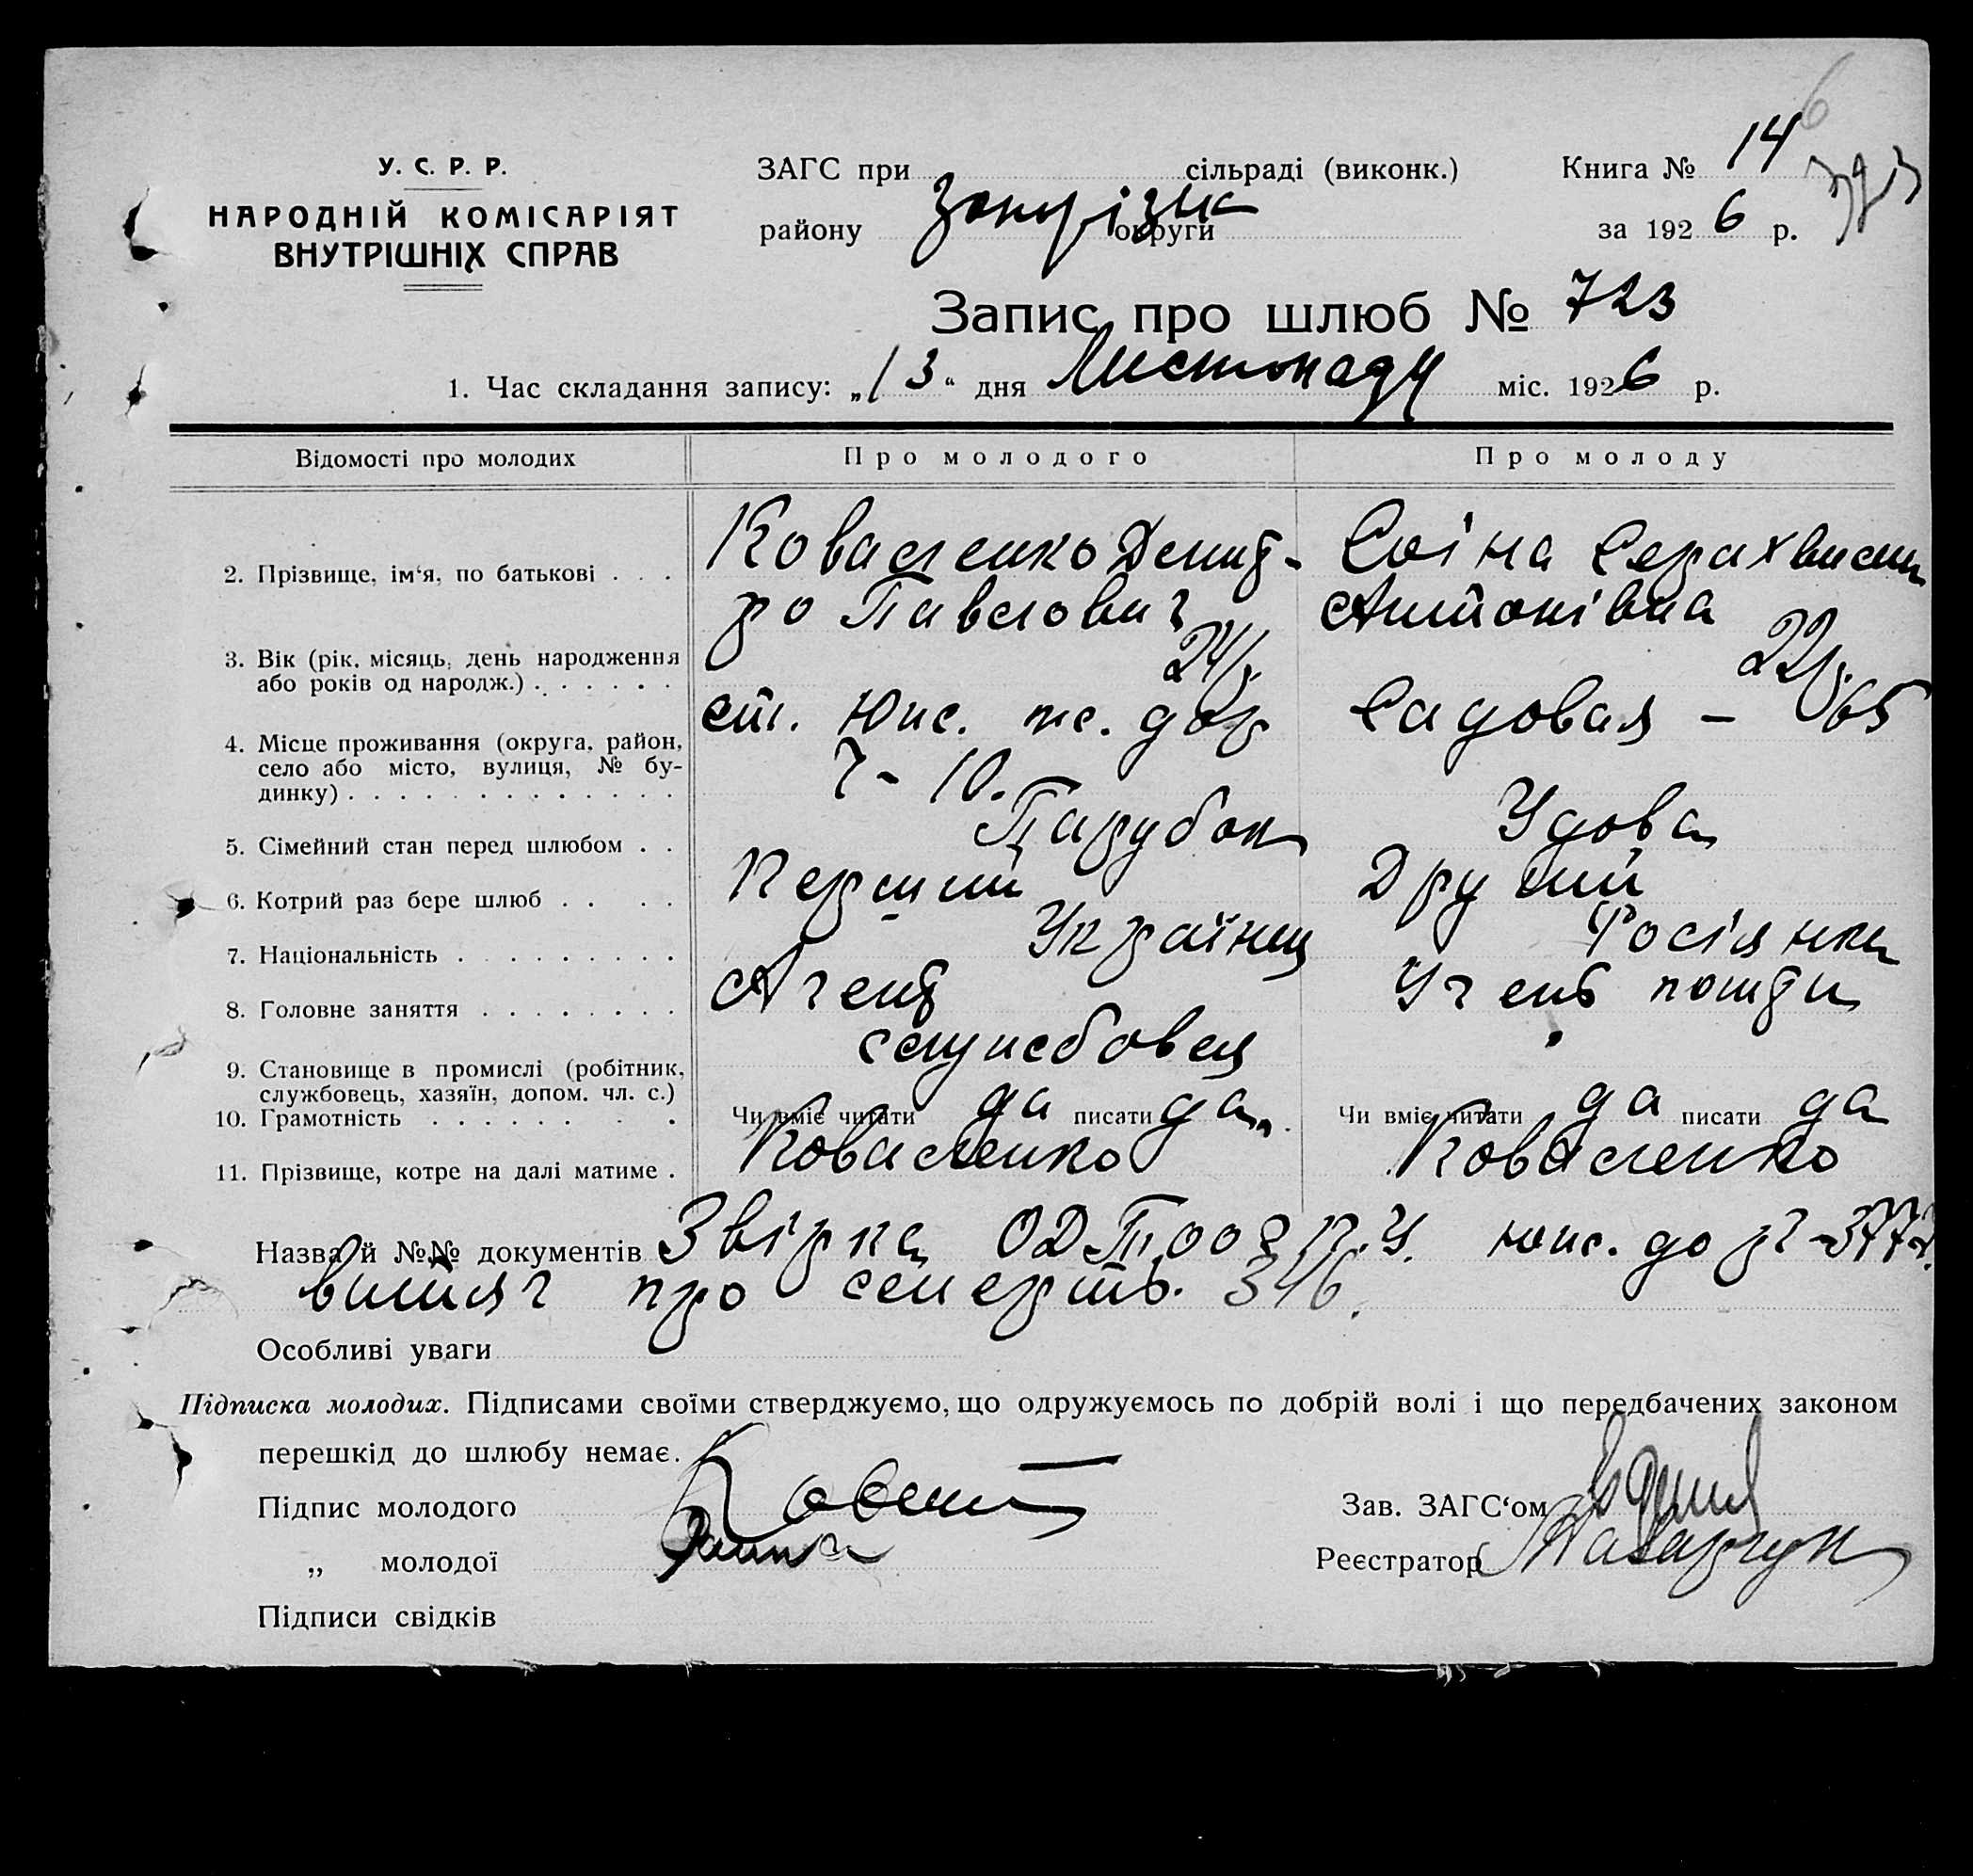 У. С. Р. Р.
НАРОДНІЙ КОМІСАРІЯТ
ВНУТРІШНІХ СПРАВ
ЗАГС при сільраді (виконк.) Книга № 14
району Запоріжж округи за 1926 р.
Запис про шлюб № 723
1. Час складання запису: „13“ дня Листопаду міс. 1926 р.
Відомості про молодих Про молодого Про молоду
2. Прізвище, ім‘я, по батькові . . . Коваленко Дмит-ро Павлович Антонівна
3. Вік (рік, місяць, день народження
або років од народж.) . . . . . . 24 р. 22 р.
4. Місце проживання (округа, район,
село або місто, вулиця, № бу-
динку) . . . . . . . . . . . . . ст. Юж. ж. дор Садовая – 65
7 - 10.
5. Сімейний стан перед шлюбом . . Парубок Удова
6. Котрий раз бере шлюб . . . . Перший Другий
7. Національність . . . . . . . . . Українец Росіянка
8. Головне заняття . . . . . . . . Агент Учень пошти
9. Становище в промислі (робітник,
службовець, хазяїн, допом. чл. с.) службовец
10. Грамотність . . . . . . . . Чи вміє читати да писати да Чи вміє читати да писати да
11. Прізвище, котре на далі матиме . Коваленко Коваленко
Назва й №№ документів Звірка юж. до р
витяг про смерть. 346.
Особливі уваги
Підписка молодих. Підписами своїми стверджуємо, що одружуємось по добрій волі і що передбачених законом
перешкід до шлюбу немає.
Підпис молодого Зав. ЗАГС‘ом
„ молодої Реєстратор
Підписи свідків